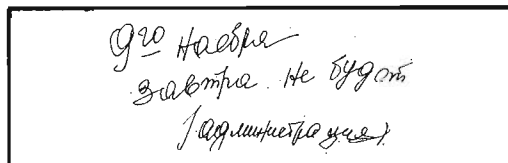 9го Ноября
завтра не будет
(администрация)